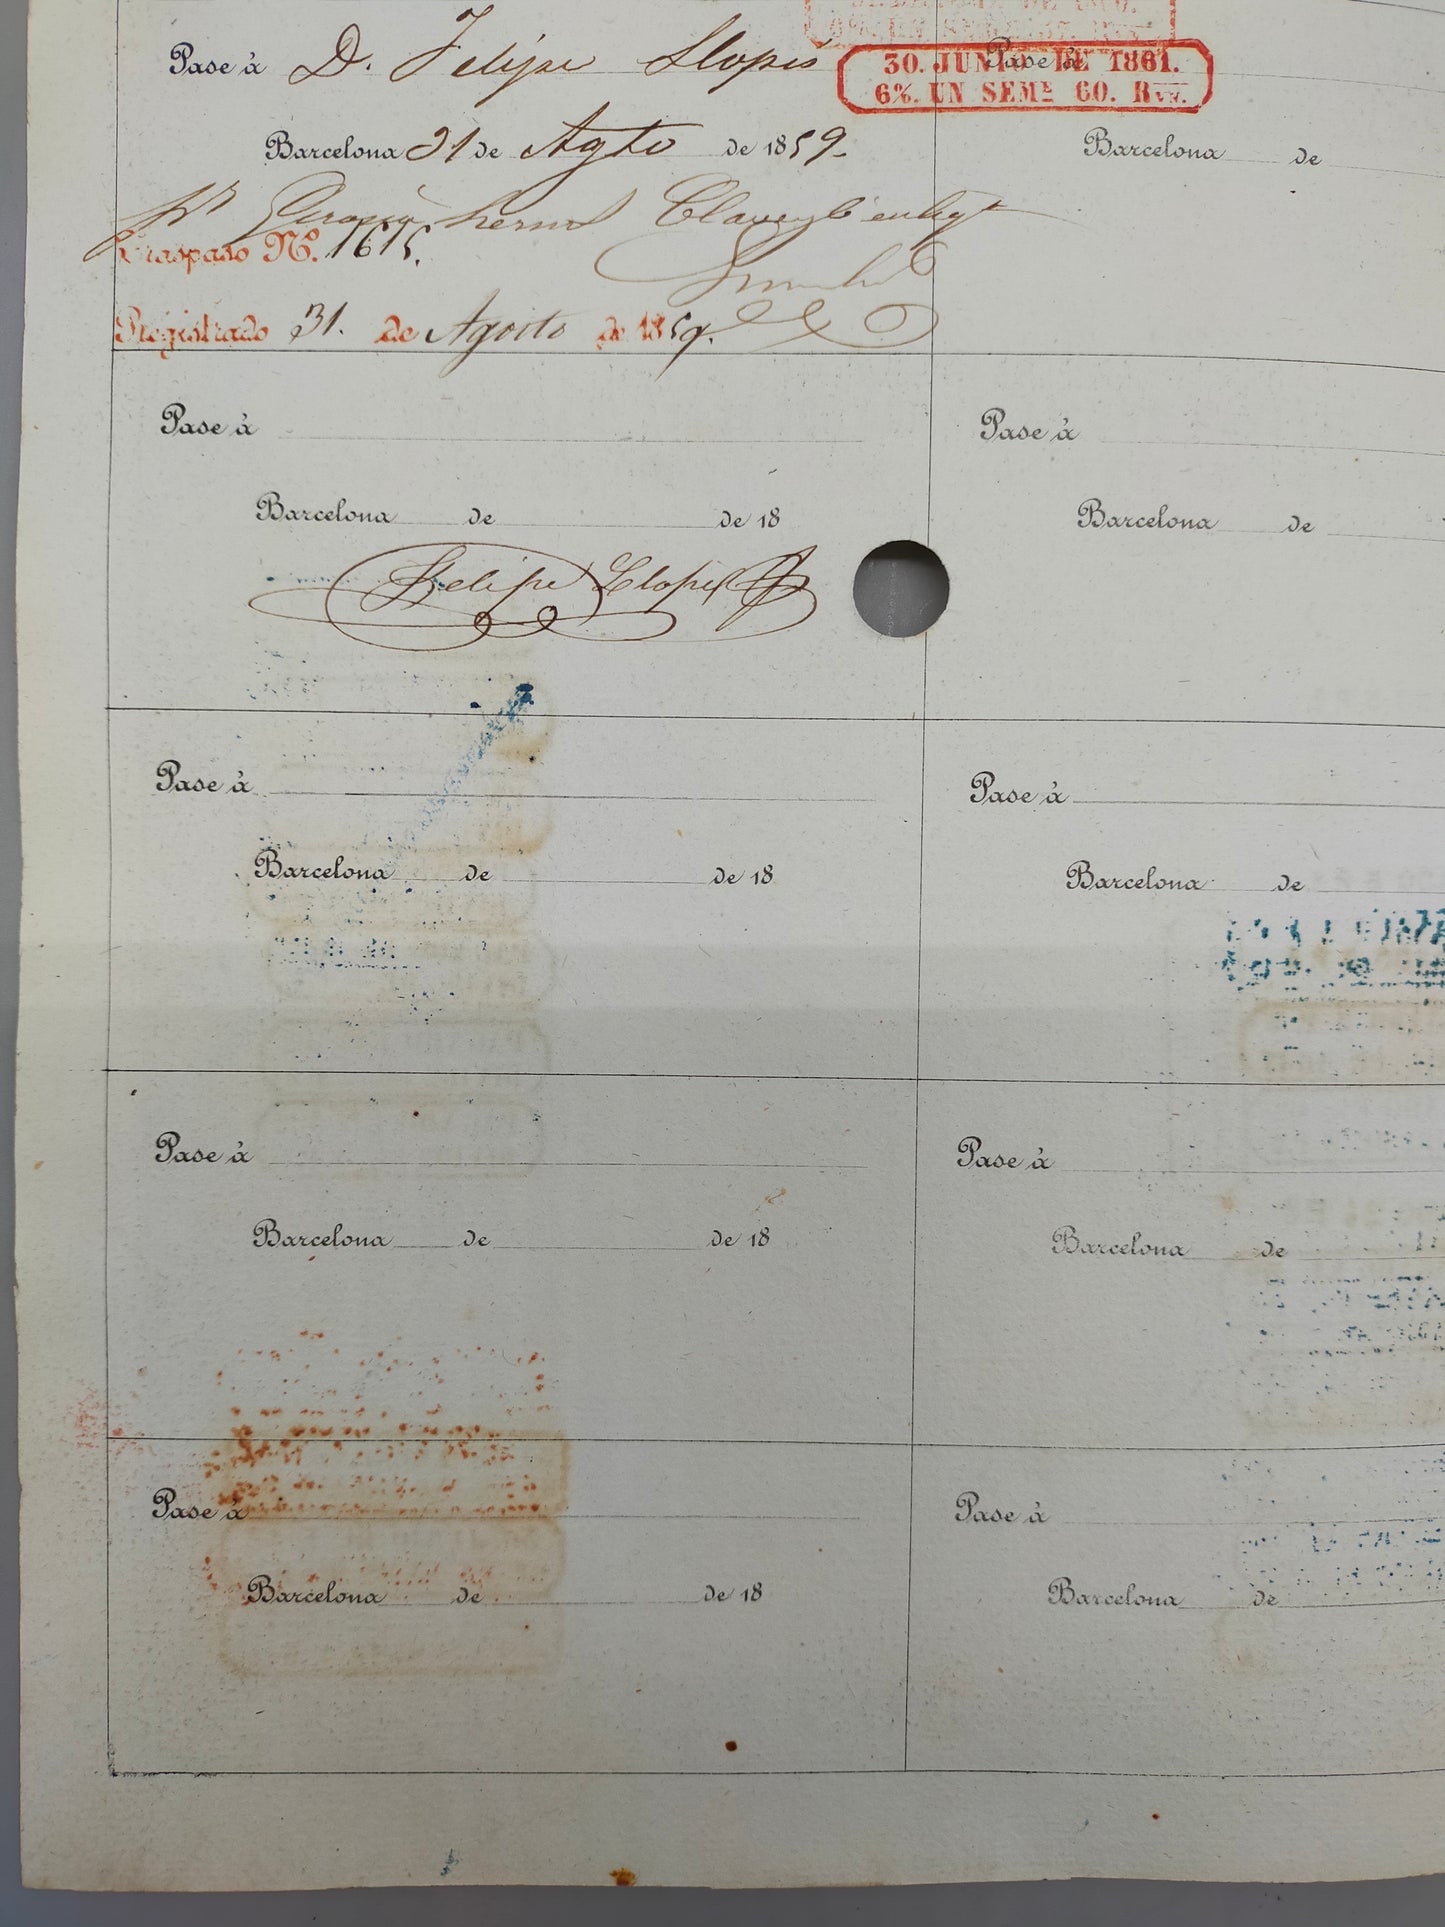 Pase á D. Felipe Llopis
30. JUNIO DE 1861.
6%. UN SEMᴱ 60. Rvn.
Pase á
Barcelona 31 de Agto de 1859.
Barcelona de
Traspaso Nº. 1615.
Registrado 31. de Agosto de 1859.
Pase á
Pase á
Barcelona de de 18
Barcelona de
Felipe Llopis
Pase á
Pase á
Barcelona de de 18
Barcelona de
Pase á
Pase á
Barcelona de de 18
Barcelona de
Pase á
Pase á
Barcelona de de 18
Barcelona de